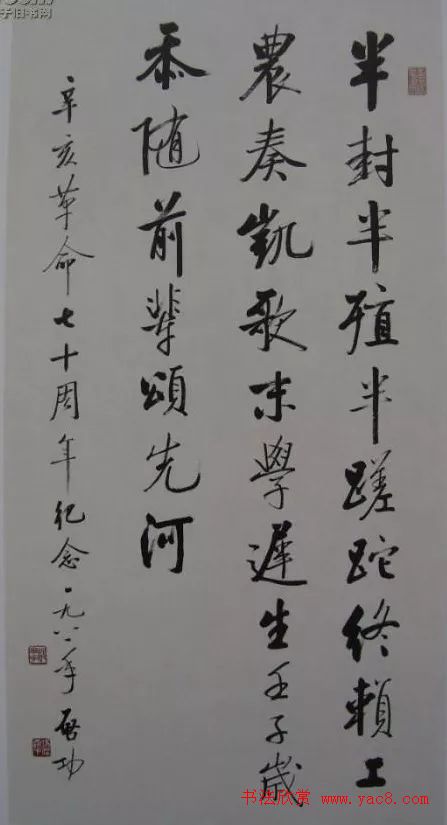 半封半殖半蹉跎终赖工
农奏凯歌末学遅生壬子岁
忝随前辈颂先河
辛亥革命七十周年纪念一九八一年启功
书法欣赏 www.yac8.com